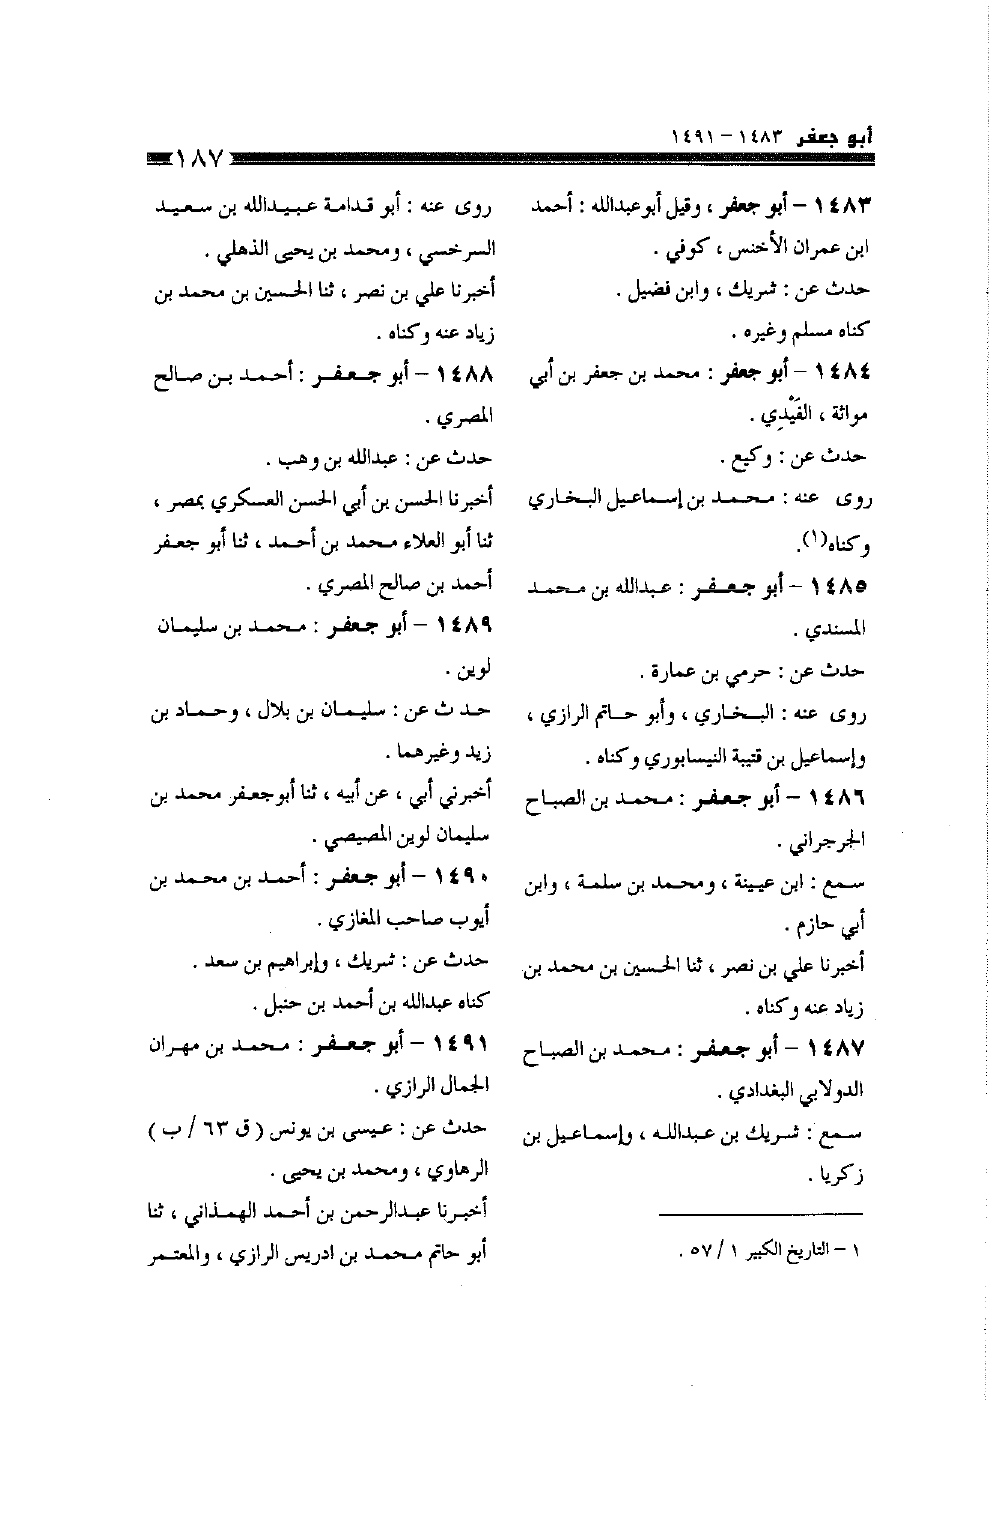 أبو جعفر ١٤٨٣ – ١٤٩١
١٨٧
١٤٨٣ – أبو جعفر ، وقيل أبو عبدالله : أحمد
ابن عمران الأخنس ، كوفي .
حدث عن : شريك ، وابن فضيل .
كناه مسلم وغيره .
١٤٨٤ – أبو جعفر : محمد بن جعفر بن أبي
مواثة ، الفَيْدِي .
حدث عن : وكيع .
روى عنه : محمد بن إسماعيل البخاري
وكناه(١).
١٤٨٥ – أبو جعفر : عبدالله بن محمد
المسندي .
حدث عن : حرمي بن عمارة .
روى عنه : البخاري ، وأبو حاتم الرازي ،
وإسماعيل بن قتيبة النيسابوري وكناه .
١٤٨٦ – أبو جعفر : محمد بن الصباح
الجرجراني .
سمع : ابن عيينة ، ومحمد بن سلمة ، وابن
أبي حازم .
أخبرنا علي بن نصر ، ثنا الحسين بن محمد بن
زياد عنه وكناه .
١٤٨٧ – أبو جعفر : محمد بن الصباح
الدولابي البغدادي .
سمع : شريك بن عبدالله ، وإسماعيل بن
زكريا .
١ – التاريخ الكبير ١ / ٥٧ .
روى عنه : أبو قدامة عبيدالله بن سعيد
السرخسي ، ومحمد بن يحيى الذهلي .
أخبرنا علي بن نصر ، ثنا الحسين بن محمد بن
زياد عنه وكناه .
١٤٨٨ – أبو جعفر : أحمد بن صالح
المصري .
حدث عن : عبدالله بن وهب .
أخبرنا الحسن بن أبي الحسن العسكري بمصر ،
ثنا أبو العلاء محمد بن أحمد ، ثنا أبو جعفر
أحمد بن صالح المصري .
١٤٨٩ – أبو جعفر : محمد بن سليمان
لوين .
حدث عن : سليمان بن بلال ، وحماد بن
زيد وغيرهما .
أخبرني أبي ، عن أبيه ، ثنا أبوجعفر محمد بن
سليمان لوين المصيصي .
١٤٩٠ – أبو جعفر : أحمد بن محمد بن
أيوب صاحب المغازي .
حدث عن : شريك ، وإبراهيم بن سعد .
كناه عبدالله بن أحمد بن حنبل .
١٤٩١ – أبو جعفر : محمد بن مهران
الجمال الرازي .
حدث عن : عيسى بن يونس ( ق ٦٣ / ب )
الرهاوي ، ومحمد بن يحيى .
أخبرنا عبدالرحمن بن أحمد الهمذاني ، ثنا
أبو حاتم محمد بن ادريس الرازي ، والمعتمر